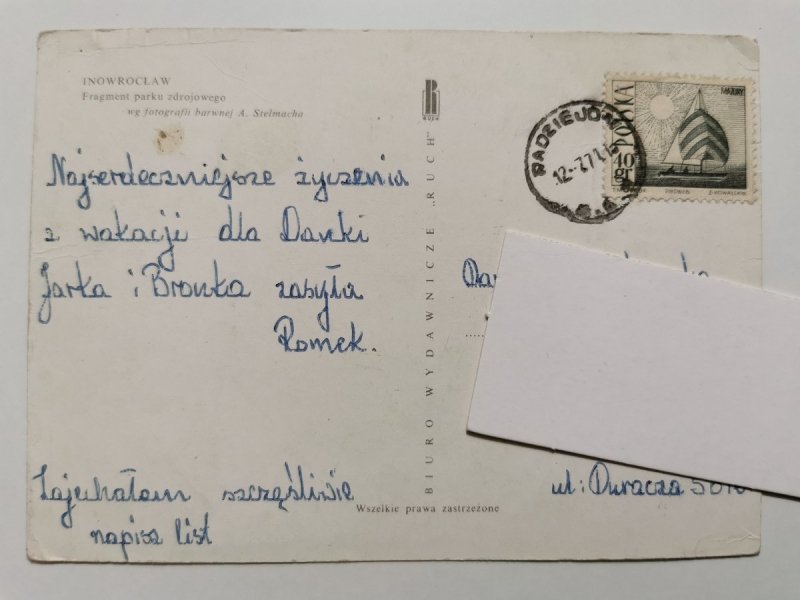 INOWROCŁAW
Fragment parku zdrojowego
wg fotografii barwnej A. Stelmacha
Najserdeczniejsze życzenia
z wakacji dla Danki
Jarka i Bronka zasyła
Romek.
Zajechałam szczęśliwie
napisz list
Wszelkie prawa zastrzeżone
BIURO WYDAWNICZE „RUCH”
RUCH
RADZIEJÓW
12-7.71
POLSKA
MAZURY
40 gr
ul: Duracza